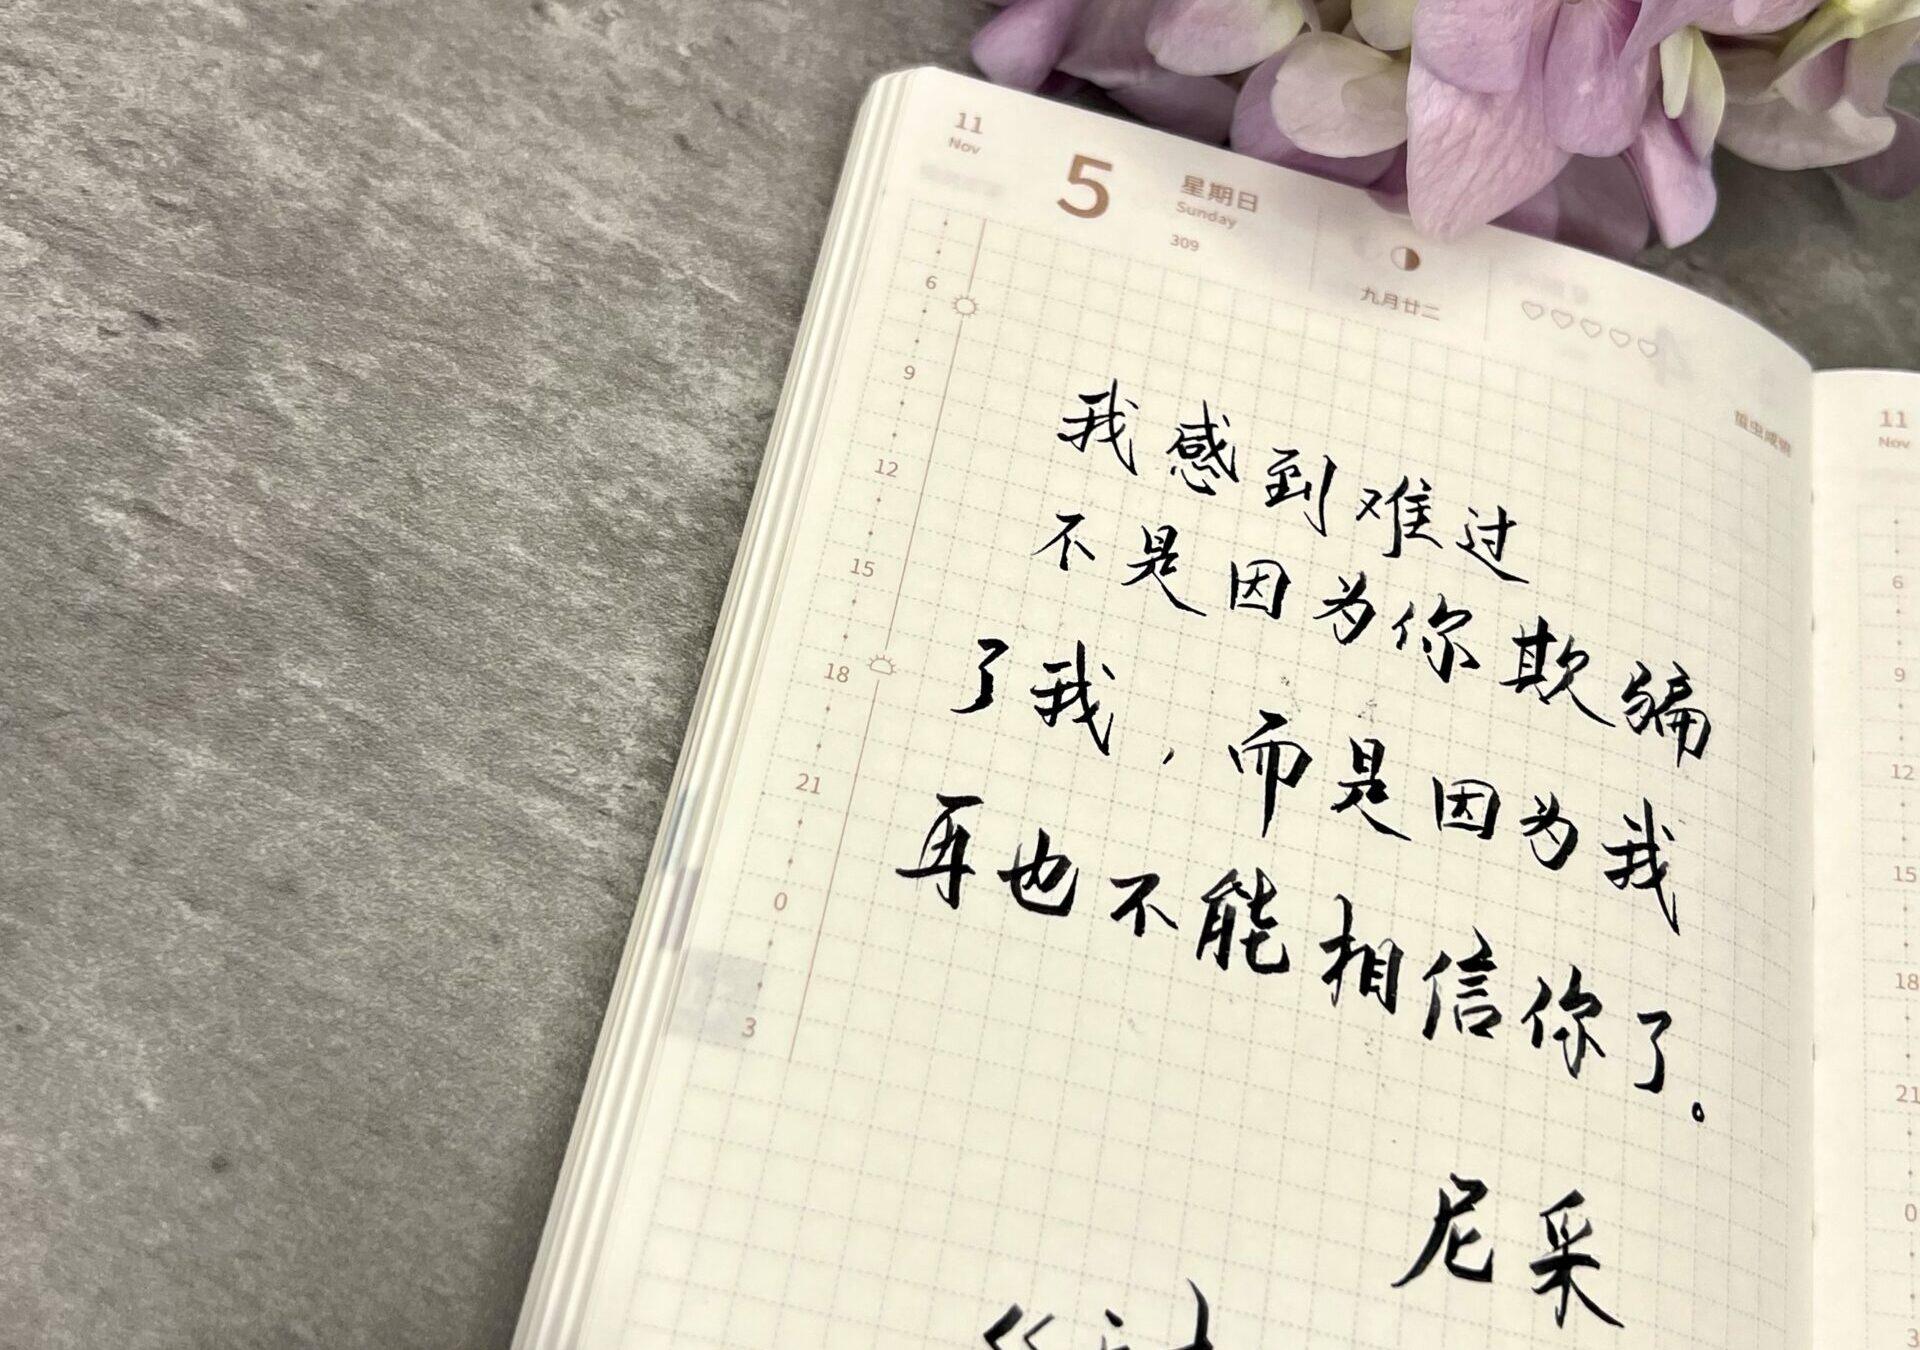 11
Nov
5
星期日
Sunday
309
九月廿二
6
9
12
15
18
21
0
3
我感到难过
不是因为你欺骗
了我，而是因为我
再也不能相信你了。
尼采
《
11
Nov
6
9
12
15
18
21
0
3